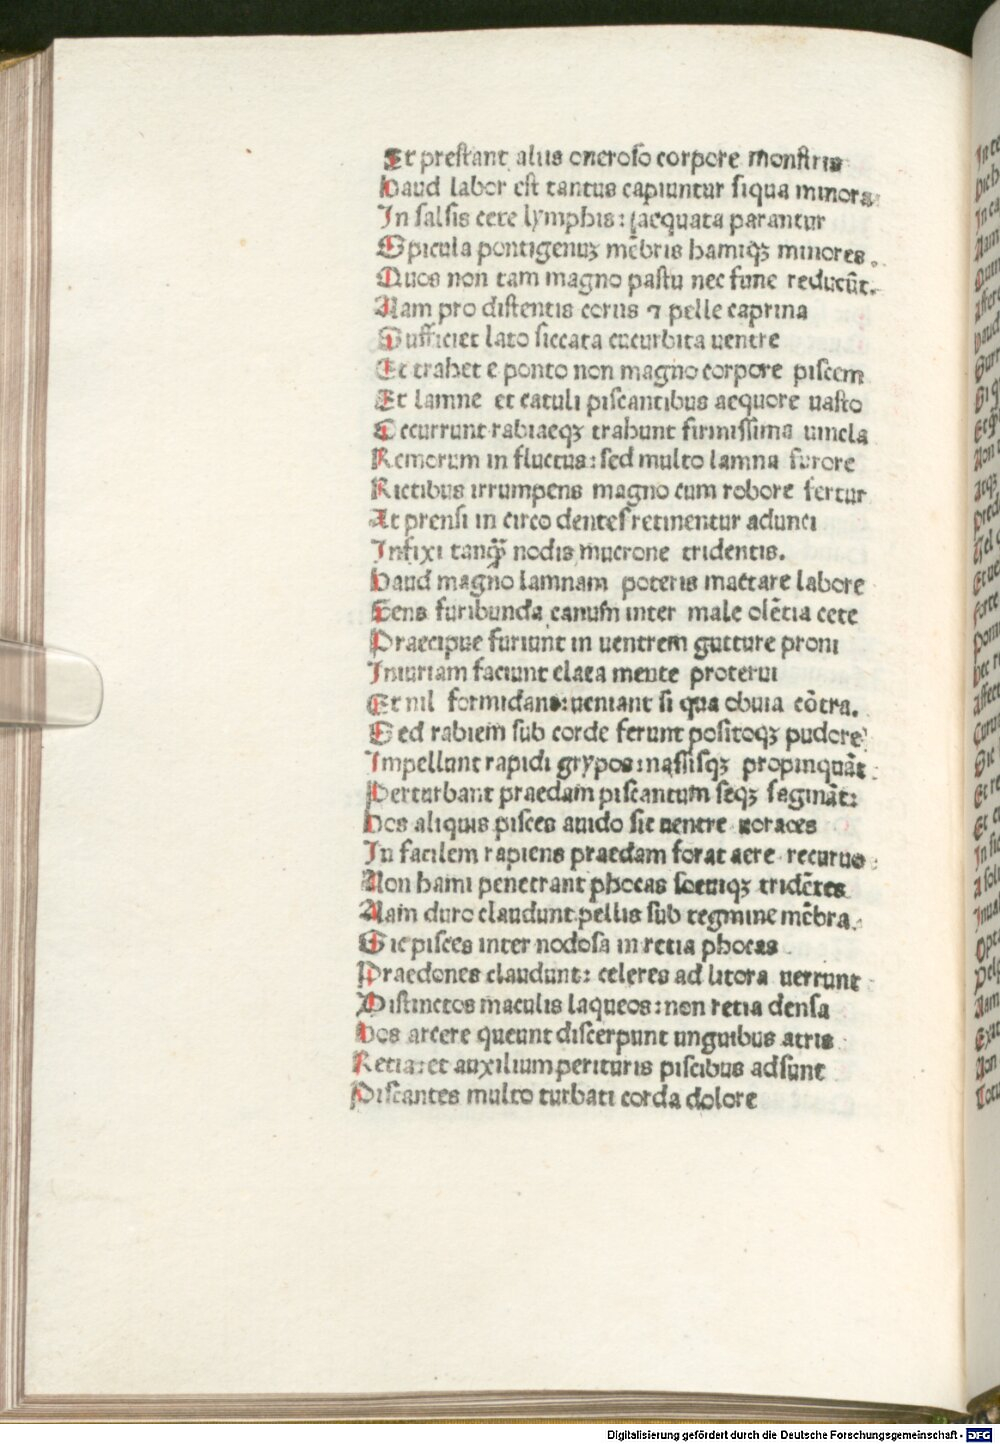 Et prestant aliis oneroso corpore monstris
Haud labor est tantus capiuntur siqua minora:
In salsis cete lymphis: iaequata parantur
Spicula pontigenuꝫ mẽbris hamiqꝫ minores.
Quos non tam magno pastu nec fune reducũt.
Nam pro distentis corus ⁊ pelle caprina
Sufficiet lato siccata cucurbita uentre
Et trahet e ponto non magno corpore piscem
Et lamne et catuli piscantibus aequore uasto
Occurrunt rabiaeqꝫ trahunt firmissima uincla
Remorum in fluctus: sed multo lamna furore
Rictibus irrumpens magno cum robore fertur
At prensi in circo dentes retinentur adunci
Infixi tanq̃ nodis mucrone tridentis.
Haud magno lamnam poteris mactare labore
Gens furibunda canum inter male olẽtia cete
Praecipue furiunt in uentrem gutture proni
Iniuriam faciunt elata mente proterui
Et nil formidans: ueniant si qua obuia cõtra.
Sed rabiem sub corde ferunt positoqꝫ pudore
Impellunt rapidi grypos: nassisqꝫ propinquãt:
Perturbant praedam piscantum seqꝫ saginãt:
Hos aliquis pisces auido sic uentre uoraces
In facilem rapiens praedam forat aere recuruo:
Non hami penetrant phocas soeuiqꝫ tridẽtes
Nam duro claudunt pellis sub tegmine mẽbra.
Sic pisces inter nodosa in retia phocas
Praedones claudunt: celeres ad litora uerrunt
Distinctos maculis laqueos: non retia densa
Hos arcere queunt discerpunt unguibus atris
Retia: et auxilium perituris piscibus adsunt
Piscantes multo turbati corda dolore
Digitalisierung gefördert durch die Deutsche Forschungsgemeinschaft - DFG